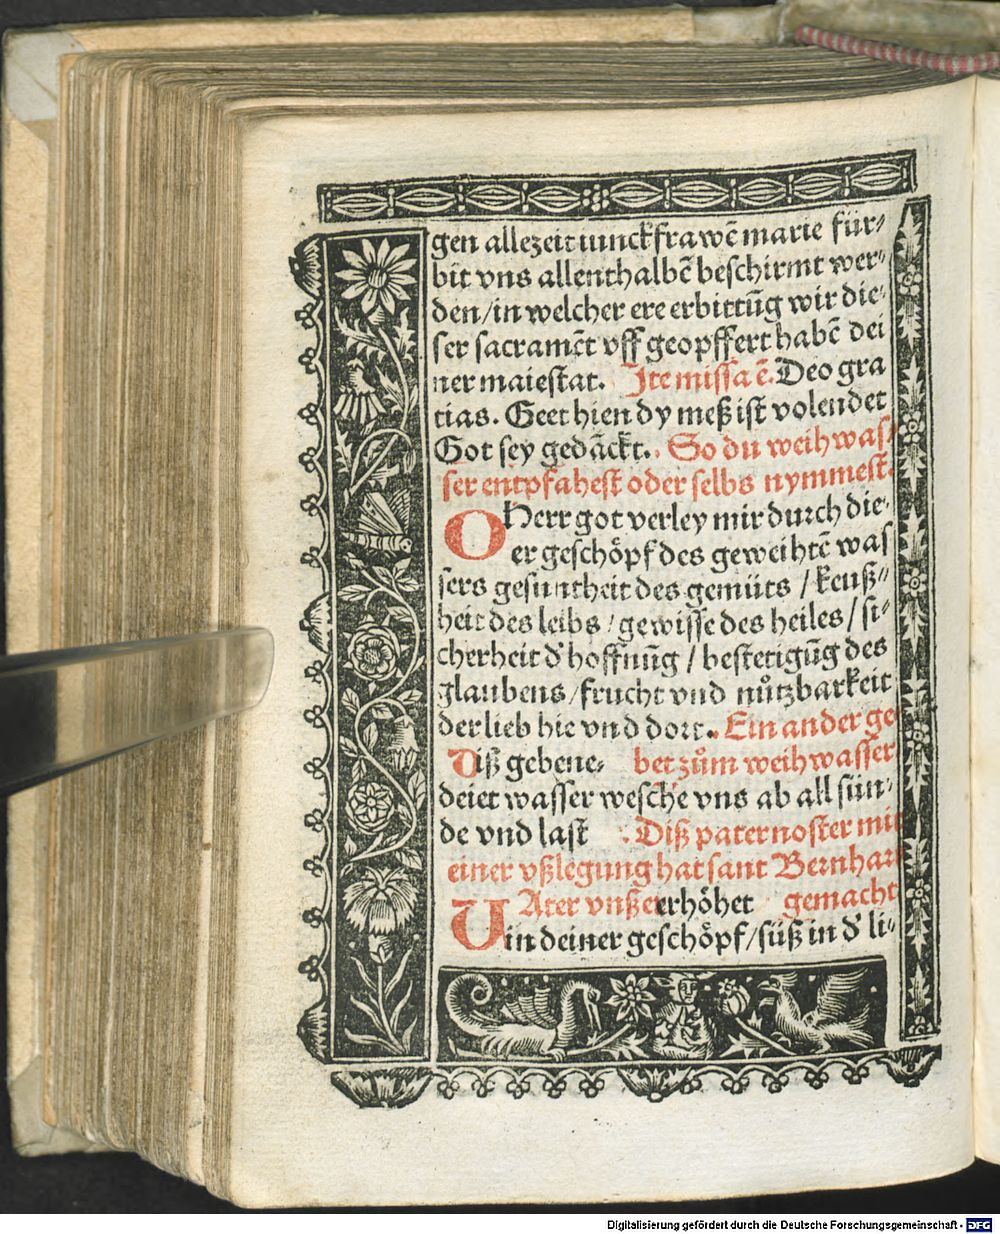 gen allezeit iunckfrawē marie für⸗
bit vns allenthalbē beschirmt wer⸗
den/in welcher ere erbittūg wir die⸗
ser sacramēt vff geopffert habē dei
ner maiestat. Ite missa ē. Deo gra
tias. Geet hien dy meß ist volendet
Got sey gedāckt. So du weihwas⸗
ser entpfahest oder selbs nymmest.
O Herr got verley mir durch die⸗
er geschöpf des geweihtē was
sers gesuntheit des gemüts / keuß⸗
heit des leibs / gewisse des heiles / si⸗
cherheit d' hoffnūg / bestetigūg des
glaubens / frucht vnd nůtzbarkeit
der lieb hie vnd dort. Ein ander ge
Diß gebene⸗ bet zům weihwasser
deiet wasser wesche vns ab all sün⸗
de vnd last Diß pater noster mit
einer vßlegung hat sant Bernhart
VAter vnßer erhöhet gemacht
in deiner geschöpf/süß in d' li⸗
Digitalisierung gefördert durch die Deutsche Forschungsgemeinschaft - DFG